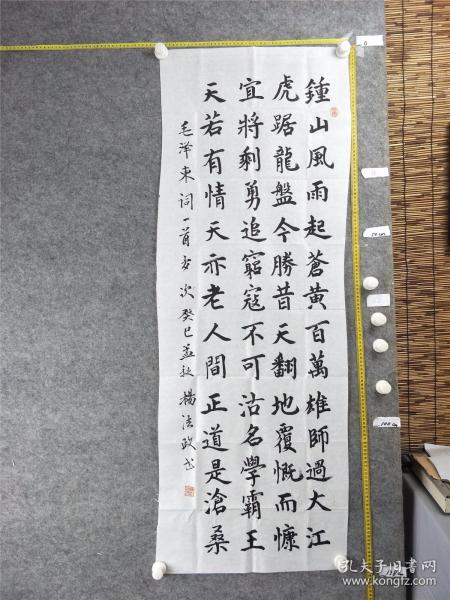 鍾山風雨起蒼黃百萬雄師過大江
虎踞龍盤今勝昔天翻地覆慨而慷
宜將剩勇追窮寇不可沽名學霸王
天若有情天亦老人間正道是滄桑
毛泽東词一首 岁次癸巳孟秋 楊法政书
孔夫子旧书网
book.kongfz.com